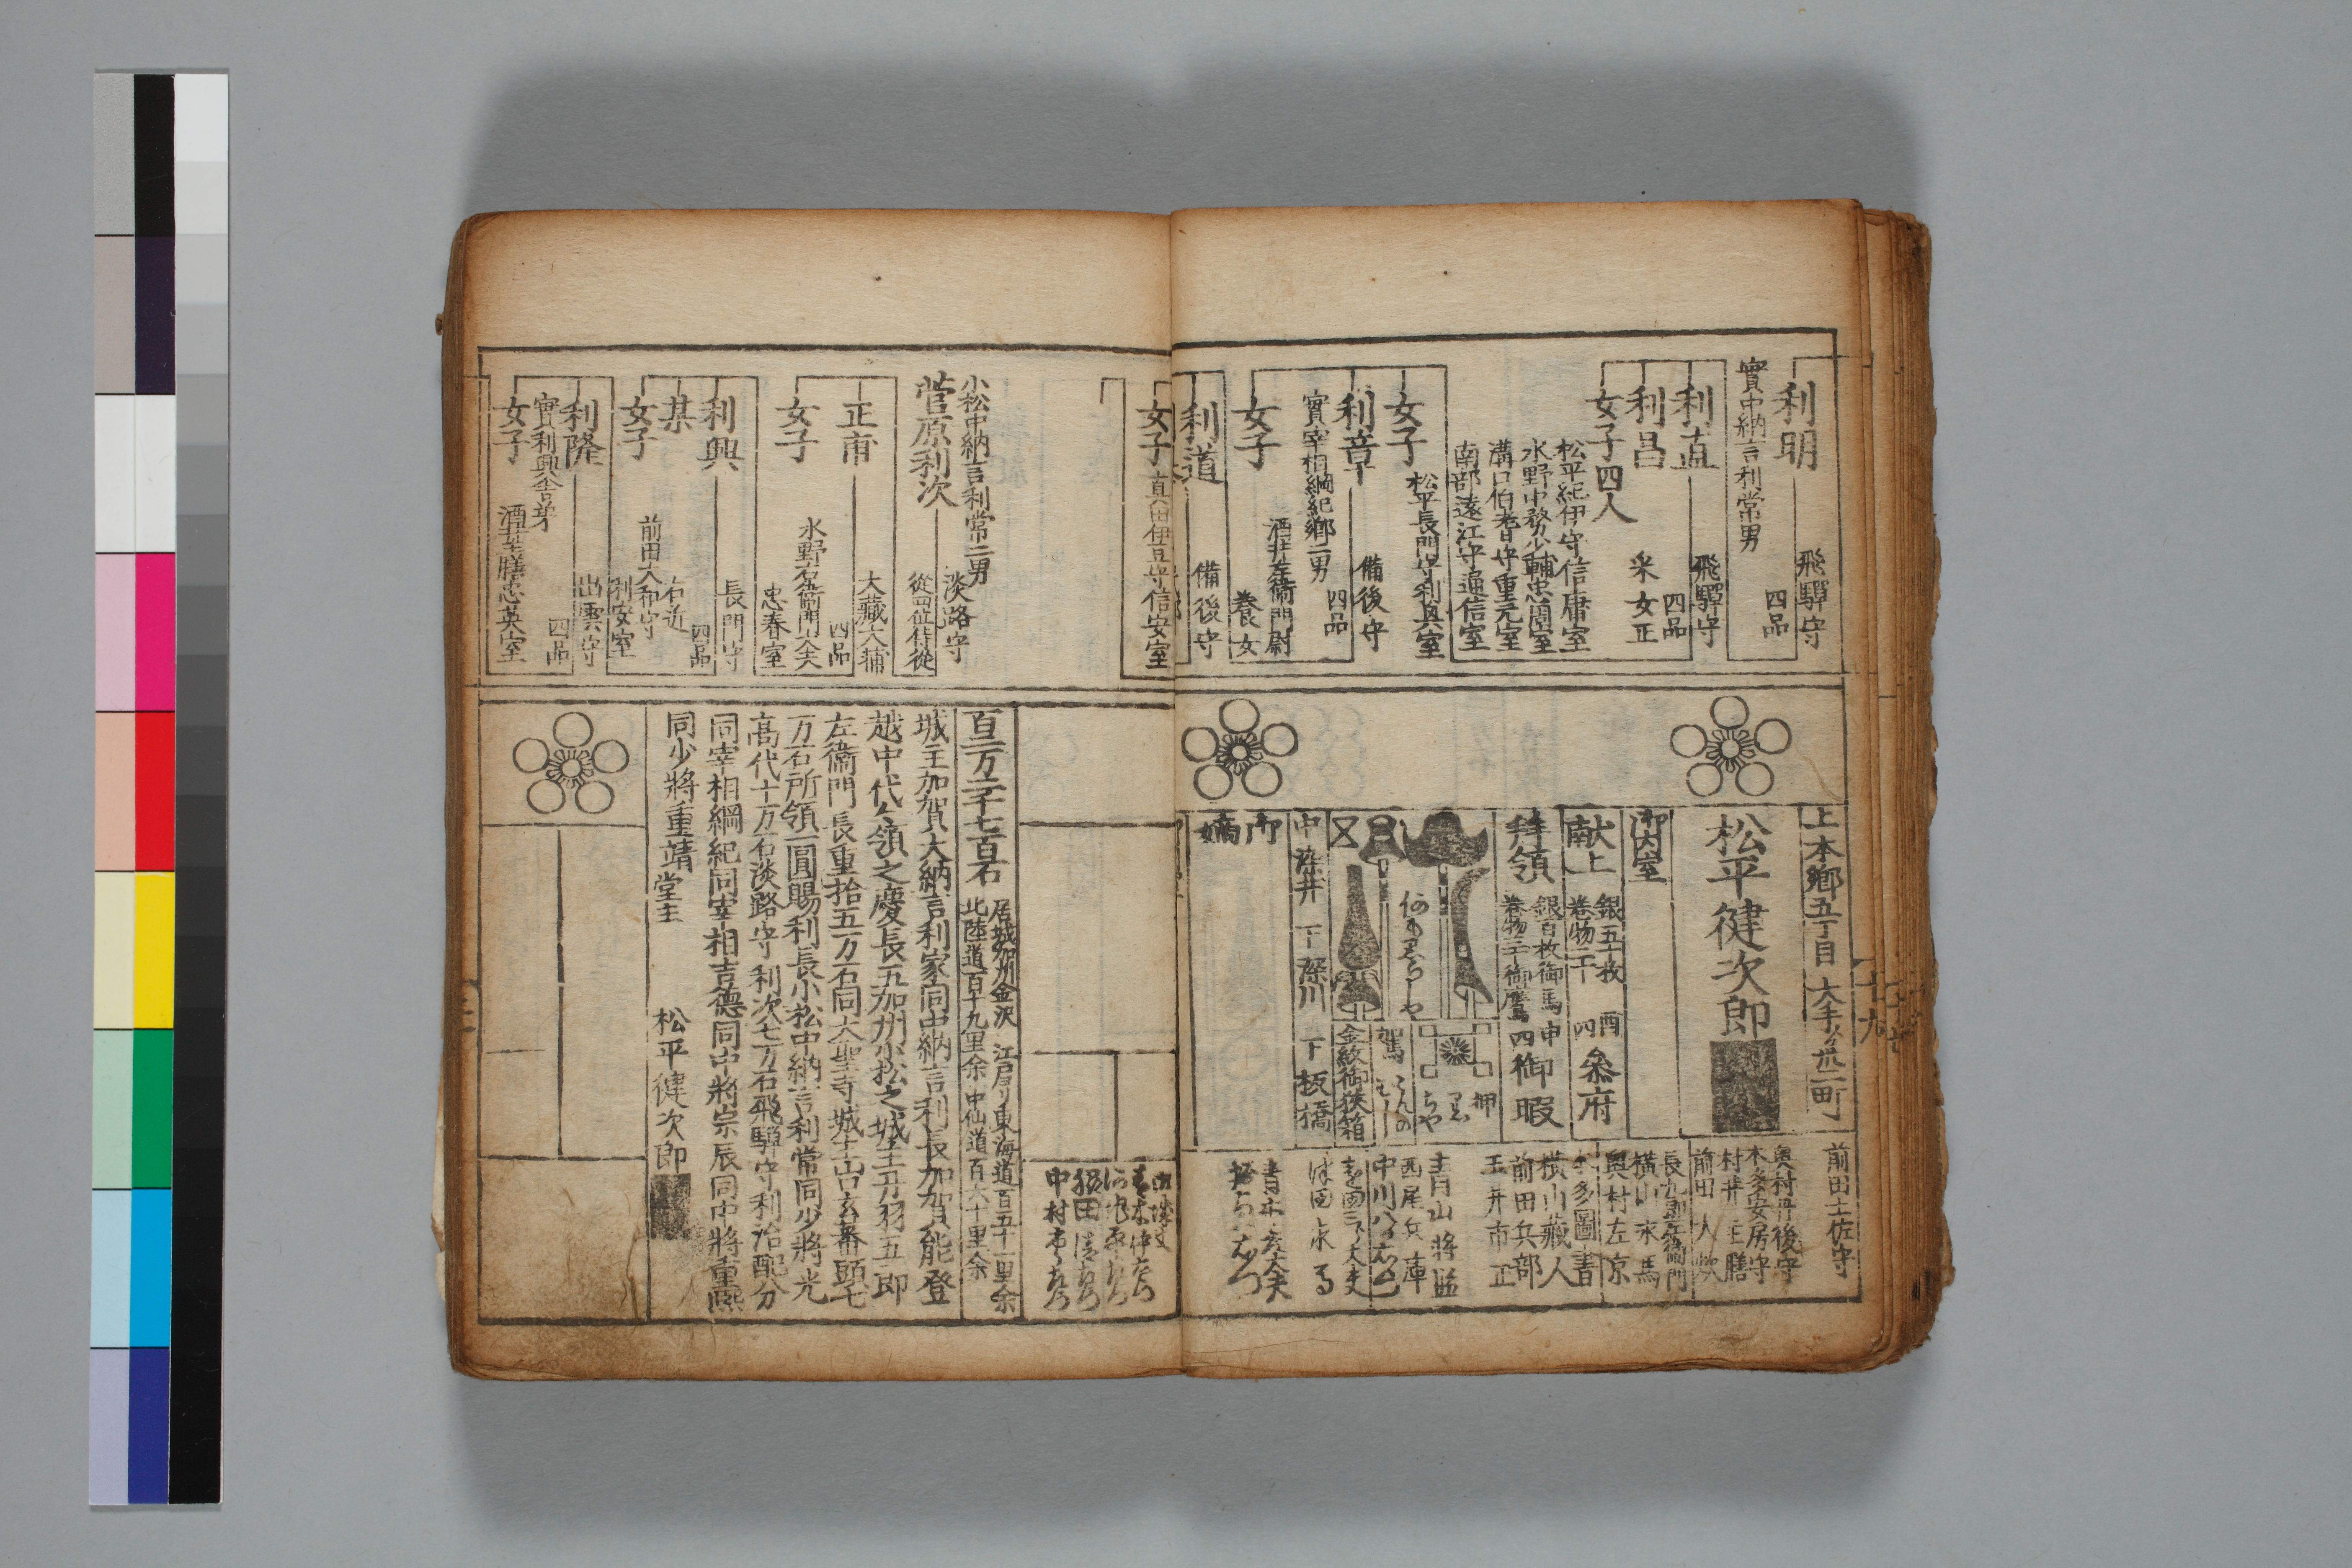 利明
飛騨守
四品
實中納言利常男
利直
飛騨守
四品
利昌
采女正
女子四人
松平紀伊守信庸室
水野中務少輔忠周室
溝口伯耆守重元室
南部遠江守通信室
女子
松平長門守利興室
利章
備後守
四品
實宰相綱紀郷二男
女子
酒井左衛門尉
養女
利道
備後守
女子
真田伊豆守信安室
上本郷五丁目
大手ゟ廿二町
松平健次郎
御内室
献上
銀五十枚
巻物二十
酉四
参府
拝領
銀百枚御馬
巻物三十御鷹
申四
御暇
押
黒
ちや
金紋御挟箱
中染井
下深川
下板橋
御嫡
前田土佐守
奥村丹後守
本多安房守
村井主膳
前田大炊
長九郎左衛門
横山求馬
奥村左京
本多圖書
横山藏人
前田兵部
玉井市正
青山将監
西尾兵庫
十九
小松中納言利常二男
菅原利次
淡路守
從四位侍從
正甫
大藏大輔
四品
女子
水野右衛門大夫
忠春室
利興
長門守
四品
某
右近
女子
前田大和守
利安室
利隆
出雲守
四品
實利興舎弟
女子
酒井主膳忠英室
百二万二千七百石
居城加州金沢
江戸ゟ東海道百五十一里余
北陸道百十九里余
中仙道百六十里余
城主加賀大納言利家同中納言利長加賀能登
越中代々領之慶長五加州小松之城主丹羽五郎
左衛門長重拾五万石同大聖寺城主山口玄蕃頭七
万石所領一圓賜利長小松中納言利常同少將光
髙代十万石淡路守利次七万石飛騨守利治配分
同宰相綱紀同宰相吉德同中將宗辰同中將重煕
同少將重靖
堂主
松平健次郎